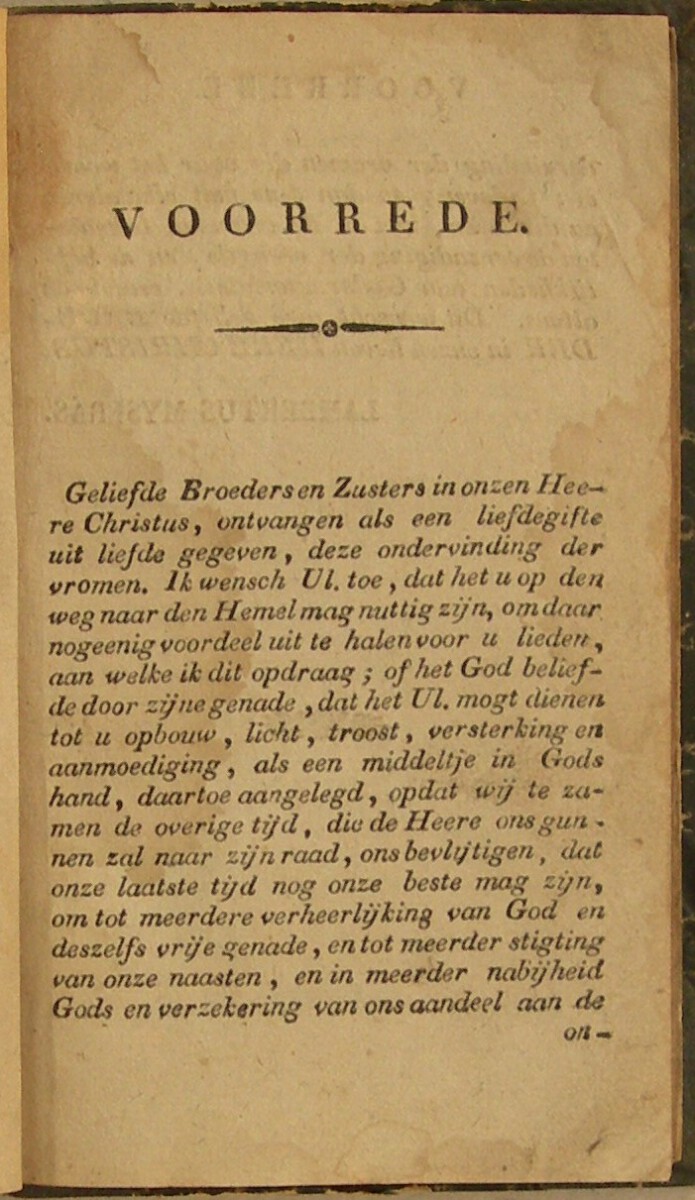 VOORREDE.
Geliefde Broeders en Zusters in onzen Hee-
re Christus, ontvangen als een liefdegifte
uit liefde gegeven, deze ondervinding der
vromen. Ik wensch Ul. toe, dat het u op den
weg naar den Hemel mag nuttig zijn, om daar
nog eenig voordeel uit te halen voor u lieden,
aan welke ik dit opdraag; of het God belief-
de door zijne genade, dat het Ul. mogt dienen
tot u opbouw, licht, troost, versterking en
aanmoediging, als een middeltje in Gods
hand, daartoe aangelegd, opdat wij te za-
men de overige tijd, die de Heere ons gun-
nen zal naar zijn raad, ons bevlijtigen, dat
onze laatste tijd nog onze beste mag zijn,
om tot meerdere verheerlijking van God en
deszelfs vrije genade, en tot meerder stigting
van onze naasten, en in meerder nabijheid
Gods en verzekering van ons aandeel aan de
on-